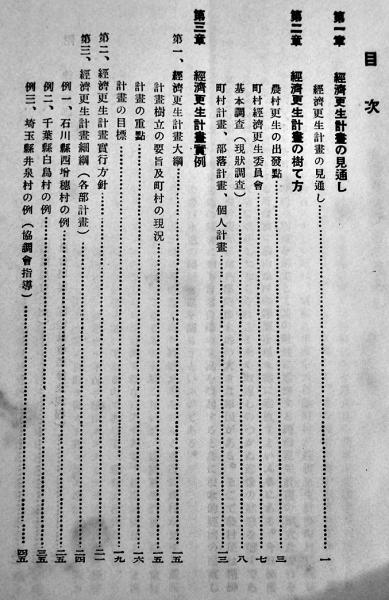 目次
第一章 經濟更生計畫の見通し
經濟更生計畫の見通し……一
第二章 經濟更生計畫の樹て方
農村更生の出發點……三
町村經濟更生委員會……七
基本調査（現狀調査）……八
町村計畫、部落計畫、個人計畫……一三
第三章 經濟更生計畫實例
第一、經濟更生計畫大綱……一五
計畫樹立の要旨及町村の現況……一五
計畫の重點……一六
計畫の目標……一九
第二、經濟更生計畫實行方針……二一
第三、經濟更生計畫細綱（各部計畫）……二四
例一、石川縣西增穗村の例……二五
例二、千葉縣白鳥村の例……三五
例三、埼玉縣井泉村の例（協調會指導）……四五